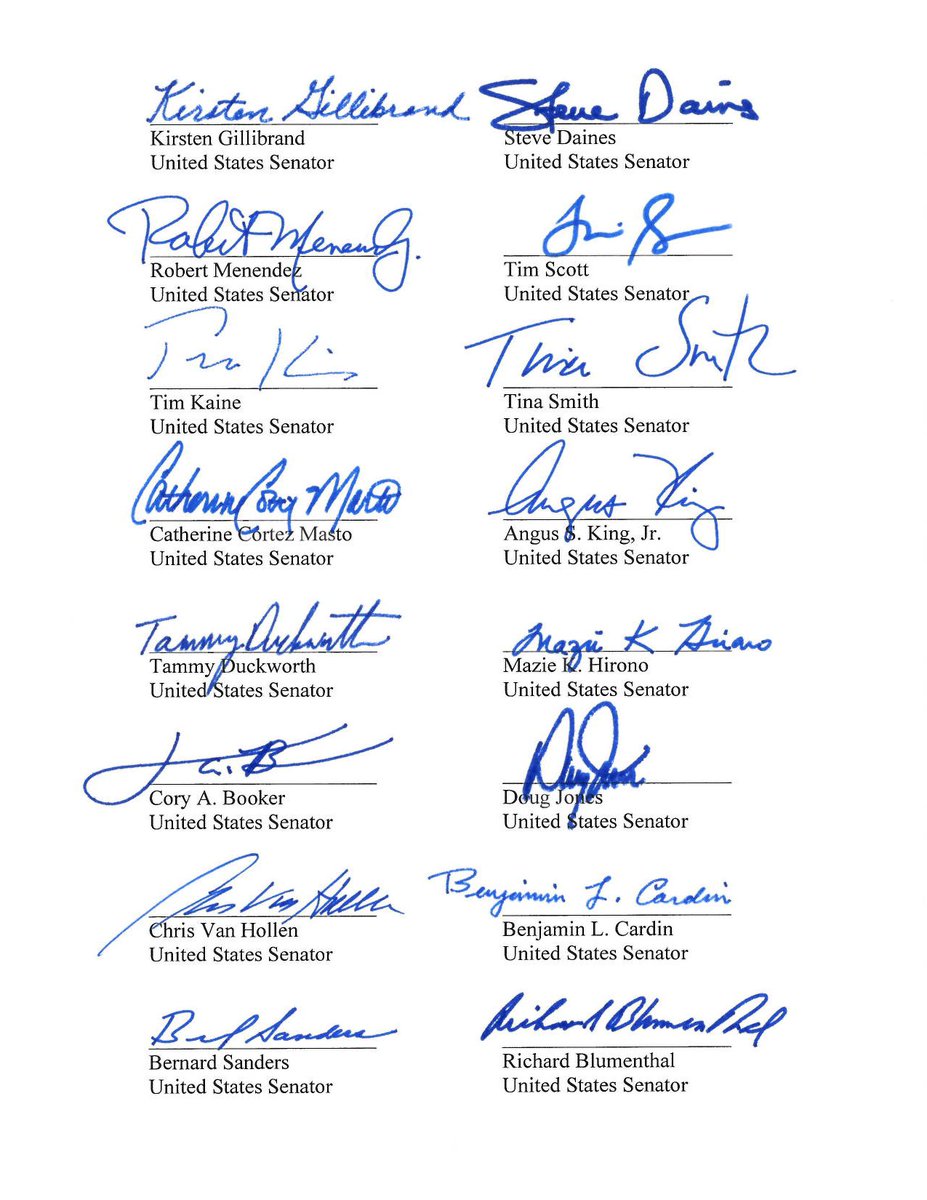 Kirsten Gillibrand
Kirsten Gillibrand
United States Senator
Steve Daines
Steve Daines
United States Senator
Robert Menendez
Robert Menendez
United States Senator
Tim Scott
United States Senator
Tim Kaine
United States Senator
Tina Smith
Tina Smith
United States Senator
Catherine Cortez Masto
Catherine Cortez Masto
United States Senator
Angus King
Angus S. King, Jr.
United States Senator
Tammy Duckworth
Tammy Duckworth
United States Senator
Mazie K Hirono
Mazie K. Hirono
United States Senator
Cory A. Booker
United States Senator
Doug Jones
United States Senator
Chris Van Hollen
Chris Van Hollen
United States Senator
Benjamin L. Cardin
Benjamin L. Cardin
United States Senator
Sanders
Bernard Sanders
United States Senator
Richard Blumenthal
Richard Blumenthal
United States Senator